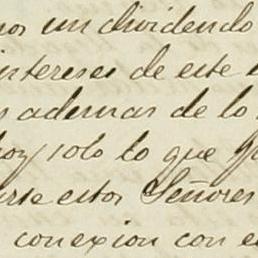 un dividendo
intereses de este
ademas de lo
hoy solo lo que
estos Señores
conexion con